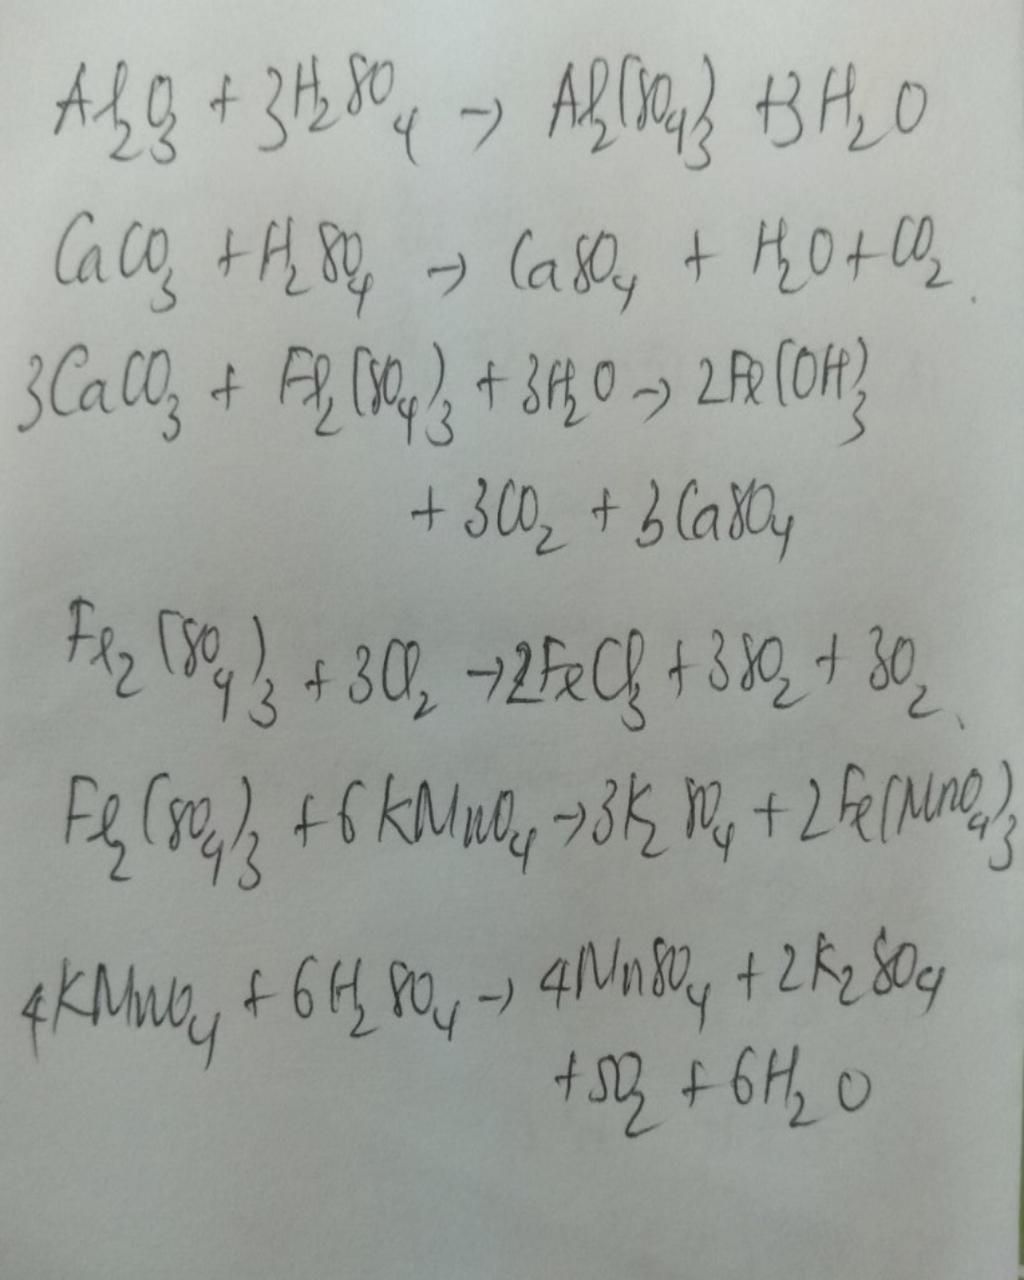 Al₂O₃ + 3H₂SO₄ → Al₂(SO₄)₃ + 3H₂O
CaCO₃ + H₂SO₄ → CaSO₄ + H₂O + CO₂
3CaCO₃ + Fe₂(SO₄)₃ + 3H₂O → 2Fe(OH)₃
+ 3CO₂ + 3CaSO₄
Fe₂(SO₄)₃ + 3Cl₂ → 2FeCl₃ + 3SO₂ + 3O₂
Fe₂(SO₄)₃ + 6KMnO₄ → 3K₂SO₄ + 2Fe(MnO₄)₃
4KMnO₄ + 6H₂SO₄ → 4MnSO₄ + 2K₂SO₄
+ 5O₂ + 6H₂O